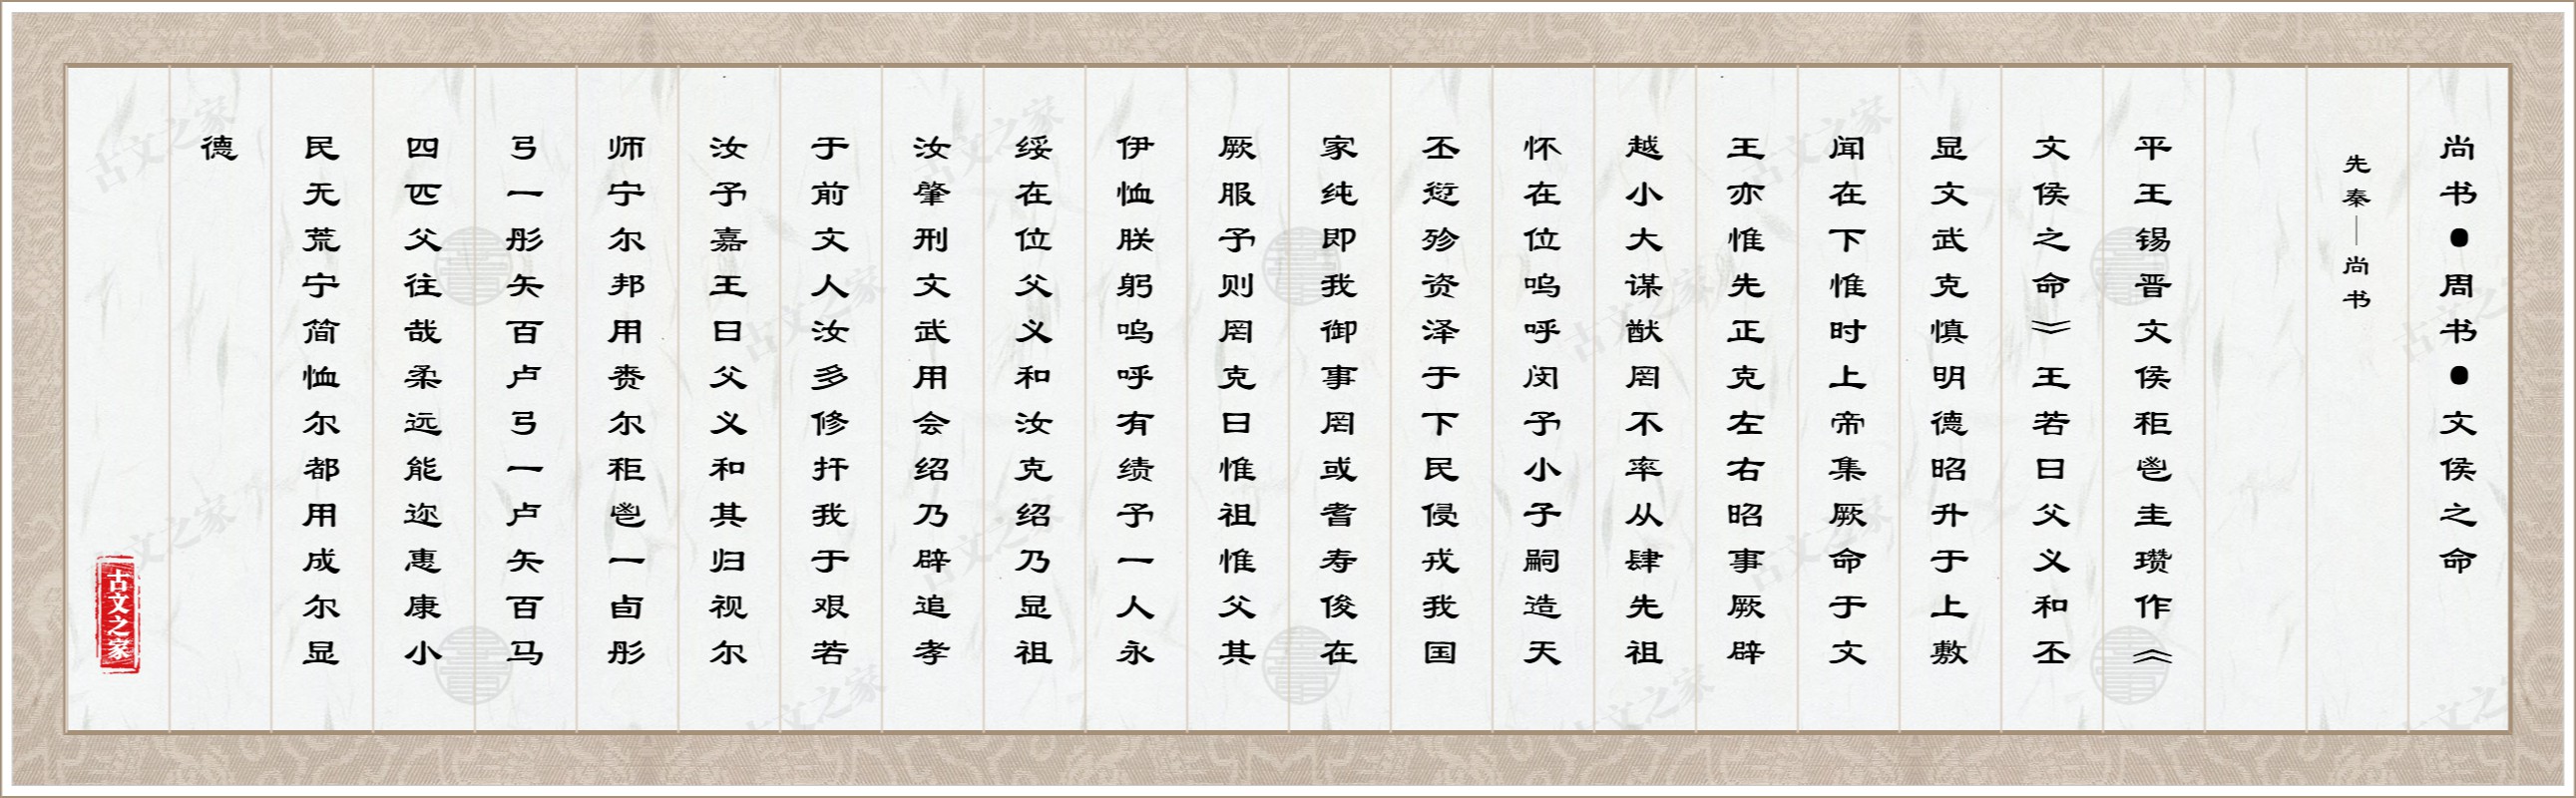 尚书●周书●文侯之命
先秦—尚书
平王锡晋文侯秬鬯圭瓒作《
文侯之命》王若曰父义和丕
显文武克慎明德昭升于上敷
闻在下惟时上帝集厥命于文
王亦惟先正克左右昭事厥辟
越小大谋猷罔不率从肆先祖
怀在位呜呼闵予小子嗣造天
丕愆殄资泽于下民侵戎我国
家纯即我御事罔或耆寿俊在
厥服予则罔克曰惟祖惟父其
伊恤朕躬呜呼有绩予一人永
绥在位父义和汝克绍乃显祖
汝肇刑文武用会绍乃辟追孝
于前文人汝多修扞我于艰若
汝予嘉王曰父义和其归视尔
师宁尔邦用赉尔秬鬯一卣彤
弓一彤矢百卢弓一卢矢百马
四匹父往哉柔远能迩惠康小
民无荒宁简恤尔都用成尔显
德
古文之家